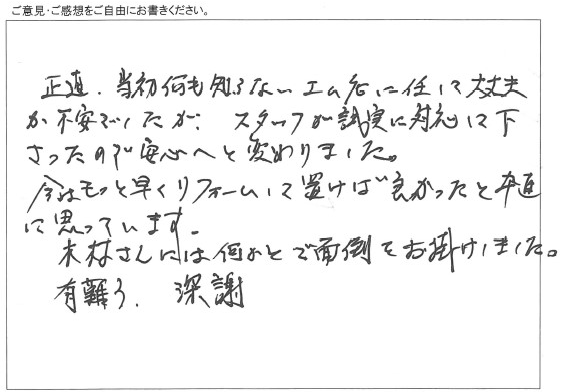 ご意見・ご感想をご自由にお書きください。
正直、当初何も知らない工ム店に任して大丈夫
か不安でしたが、スタッフが誠実に対応して下
さったので安心へと変わりました。
今はもっと早くリフォームして置けば良かったと卒直
に思っています。
木村さんには何かとで面倒をお掛けしました。
有難う、深謝